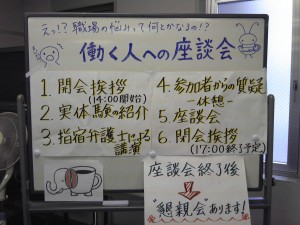 えっ!?職場の悩みって何とかなるの!?
働く人への座談会
1.開会挨拶
(14:00開始)
2.実体験の紹介
3.指宿弁護士による
講演
4.参加者からの質疑
−休憩−
5.座談会
6.閉会挨拶
(17:00終了予定)
座談会終了後
"懇親会"あります!